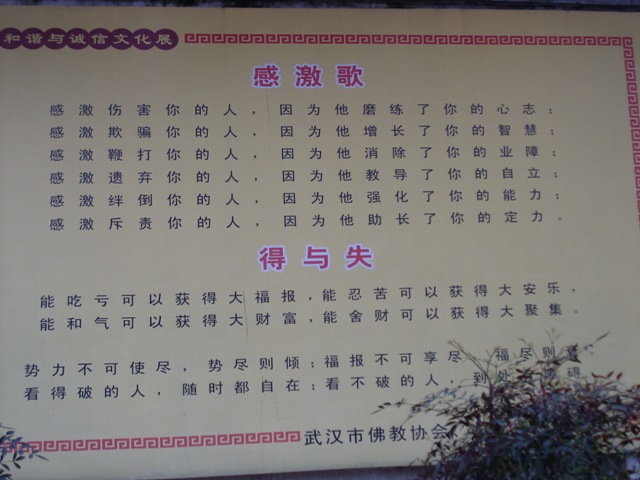 和谐与诚信文化展
感激歌
感激伤害你的人，因为他磨练了你的心志；
感激欺骗你的人，因为他增长了你的智慧；
感激鞭打你的人，因为他消除了你的业障；
感激遗弃你的人，因为他教导了你的自立；
感激绊倒你的人，因为他强化了你的能力；
感激斥责你的人，因为他助长了你的定力。
得与失
能吃亏可以获得大福报，能忍苦可以获得大安乐，
能和气可以获得大财富，能舍财可以获得大聚集。
势力不可使尽，势尽则倾；福报不可享尽，福尽则
看得破的人，随时都自在；看不破的人，到处 碍
武汉市佛教协会